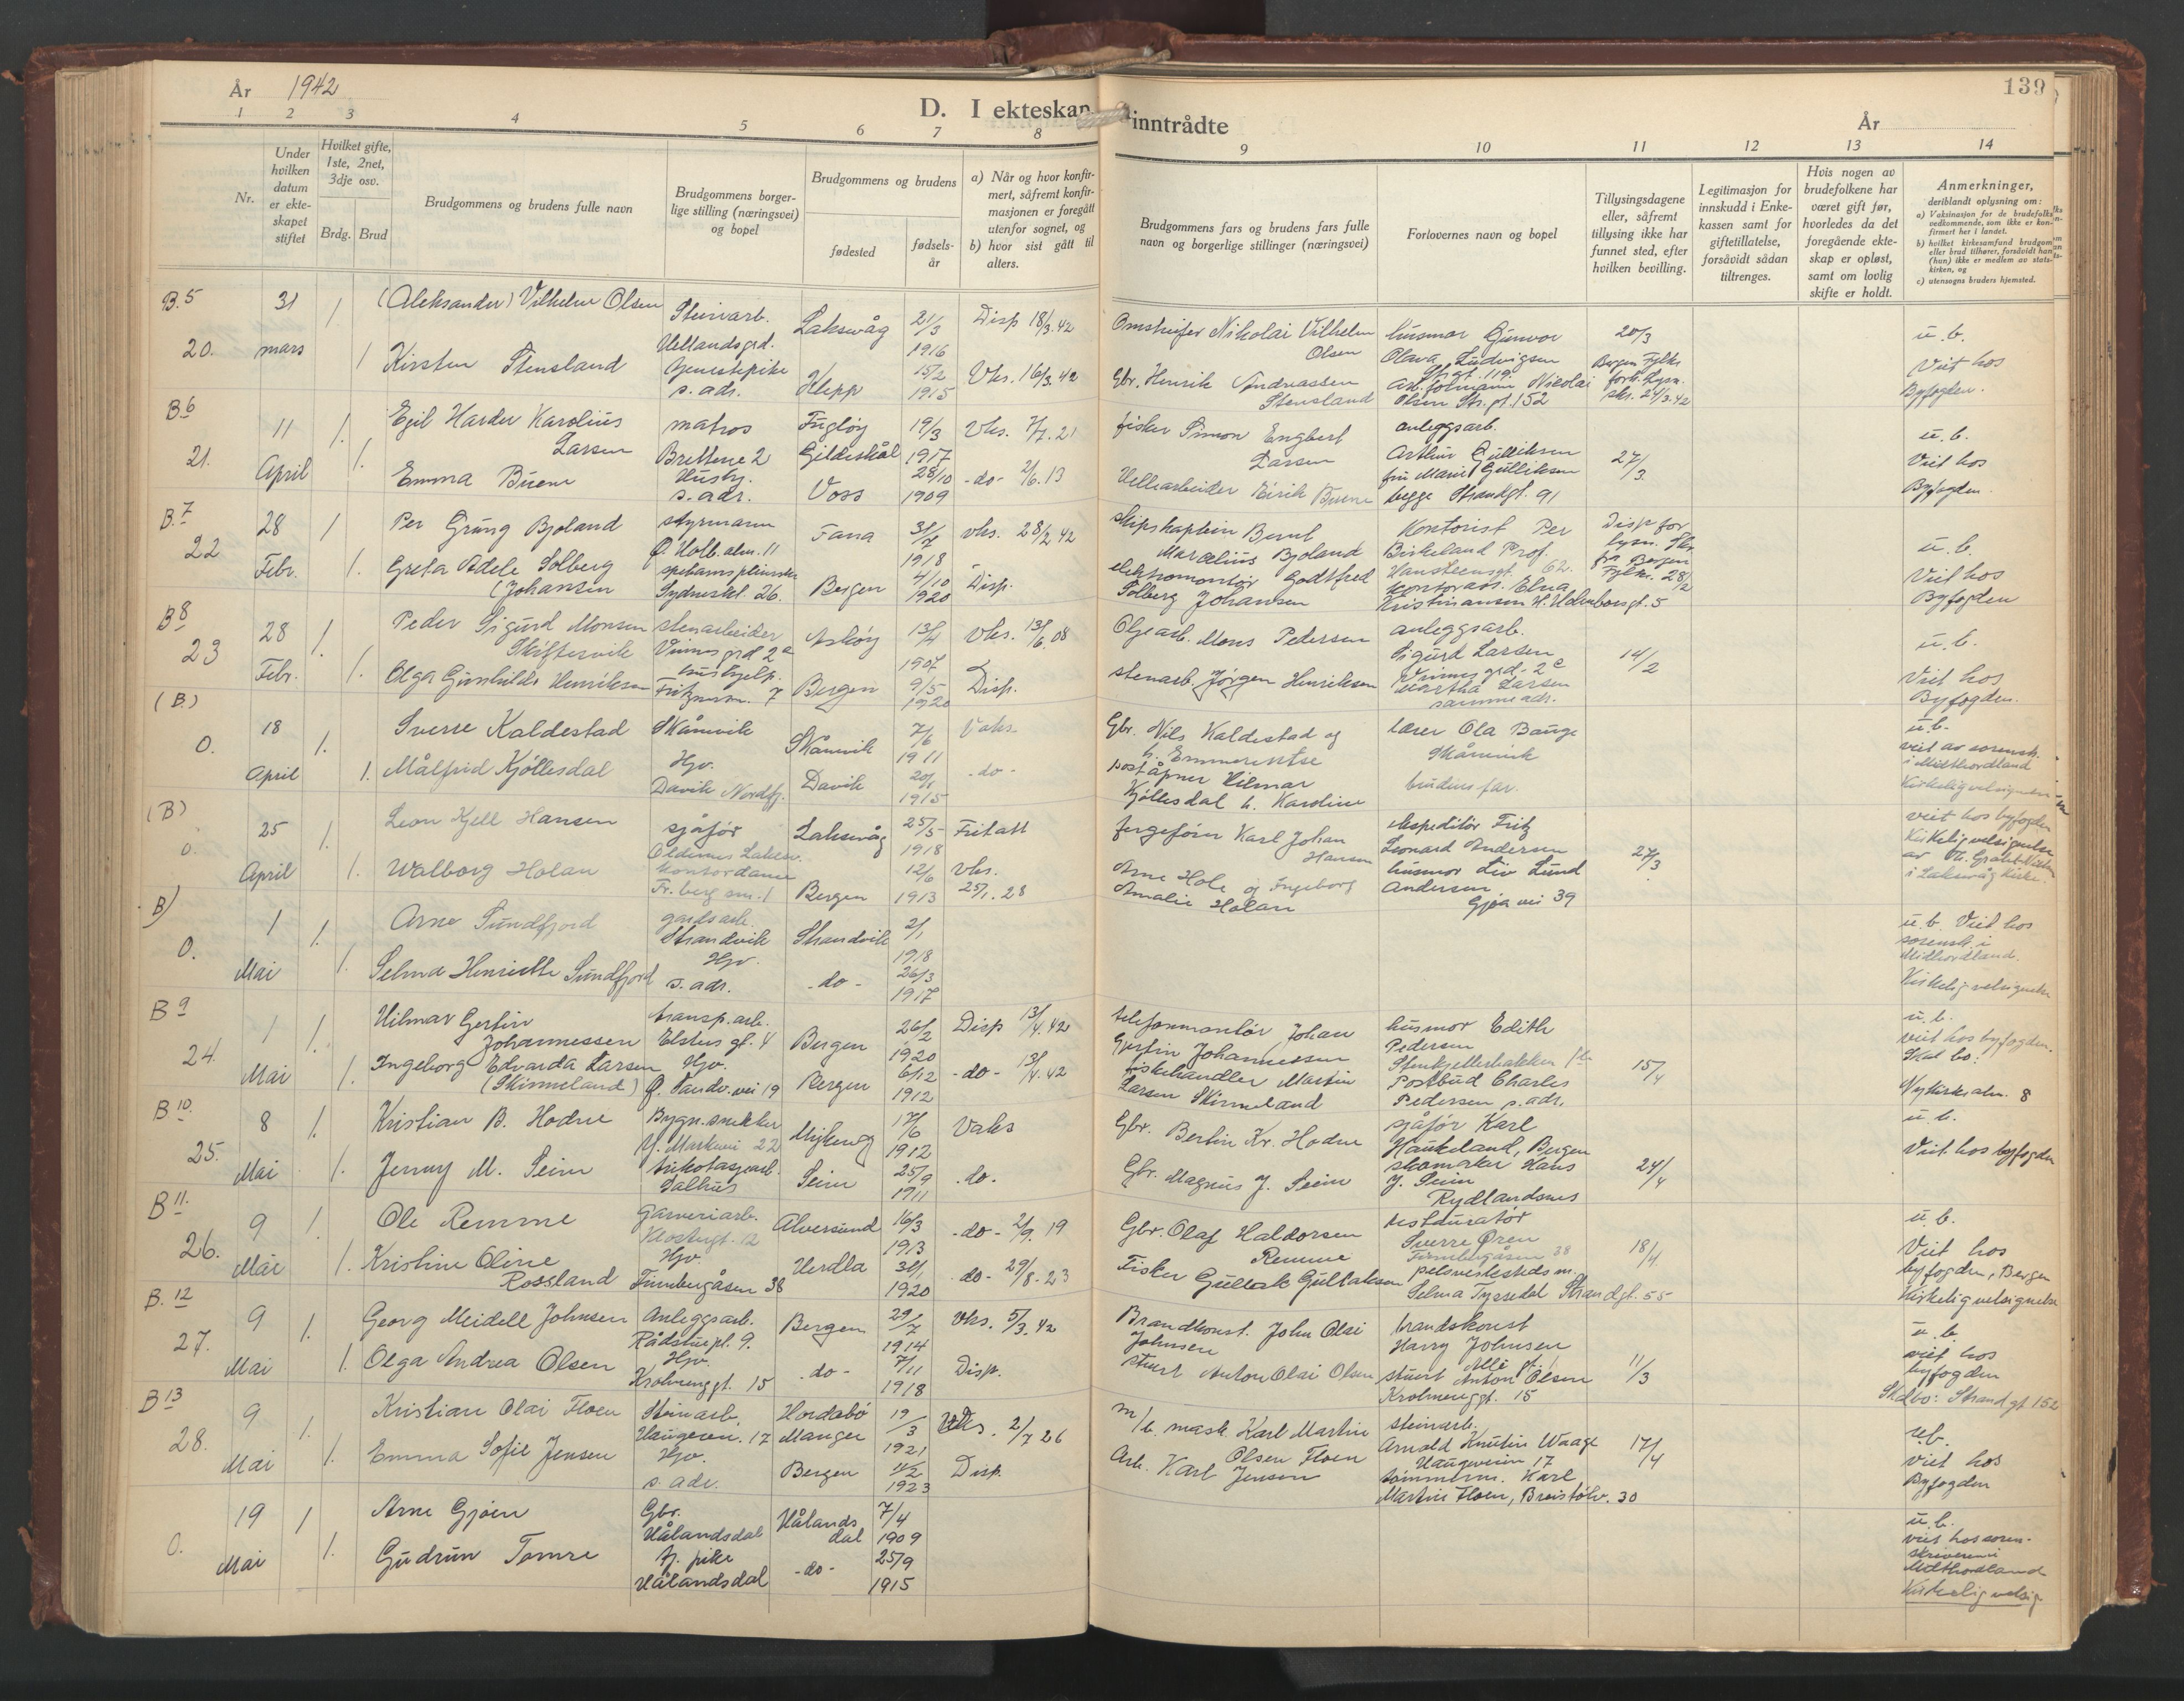 År 1942
D. I ekteskap inntrådte
År
139
1 2 3 4 5 6 7 8 9 10 11 12 13 14
Nr.
Under hvilken datum er ekteskapet stiftet
Hvilket gifte, 1ste, 2net, 3dje osv.
Brdg. Brud
Brudgommens og brudens fulle navn
Brudgommens borgerlige stilling (næringsvei) og bopel
Brudgommens og brudens
fødested
fødsels-år
a) Når og hvor konfirmert, såfremt konfirmasjonen er foregått utenfor sognet, og
b) hvor sist gått til alters.
Brudgommens fars og brudens fars fulle navn og borgerlige stillinger (næringsvei)
Forlovernes navn og bopel
Tillysingsdagene eller, såfremt tillysing ikke har funnet sted, efter hvilken bevilling.
Legitimasjon for innskudd i Enkekassen samt for giftetillatelse, forsåvidt sådan tiltrenges.
Hvis nogen av brudefolkene har været gift før, hvorledes da det foregående ekteskap er opløst, samt om lovlig skifte er holdt.
Anmerkninger, deriblandt oplysning om:
a) Vaksinasjon for de brudefolks vedkommende, som ikke er konfirmert her i landet.
b) hvilket kirkesamfund brudgom eller brud tilhører, forsåvidt han (hun) ikke er medlem av statskirken, og
c) utensogns bruders hjemsted.
B.5
20.
31 mars
1
(Aleksander) Vilhelm Olsen
Steinarb.
Laksevåg
21/3 1916
Disp 18/3.42
Nikolai Vilhelm Olsen
husmor Gunvor Olava Ludvigsen
Strgt. 119.
20/3
u.b.
1
Kirsten Stensland
s. adr.
Klepp
15/2 1915
Vks. 16/3.42
Gbr. Henrik Andreassen Stensland
Nikolai Olsen Str.gt. 152
Bergen Fylke
24/3.42
Viet hos Byfogden.
B 6
21.
11 April
1.
Egil Harder Karolius Larsen
matros
Brettene 2
Fugløy Gildeskål
19/3 1917
Vks. 7/7.21
fisker Simon Engbert Larsen
anleggsarb.
Arthur Gulliksen
27/3.
u.b.
1.
Emma Buene
Hushj.
s. adr.
Voss
28/10 1909
-do- 2/6.13
Eirik Buene
fru Marie Gulliksen
begge Strandgt. 91
Viet hos Byfogden.
B.7
22
28 Febr.
1
Per Grung Bjoland
styrmann
Ø. Holb. alm. 11
Fana
31/7 1918
vks. 28/2 42
skipskaptein Bernt Marcelius Bjoland
Kontorist Per Birkeland Prof. Hansteensgt. 62.
Disp for lysn.
fra Bergen Fylke. 28/2
u.b.
1.
Greta Adele Solberg (Johansen
Sydneskl. 26.
Bergen
4/10 1920
Disp.
elektromontør Godtfred Solberg Johansen
Kontorass. Elna Kristiansen
Viet hos Byfogden
B 8
23
28 Febr.
1.
Peder Sigurd Monsen Skiftervik
stenarbeider
Askøy
13/4 1907
Vks. 13/6.08
Oljearb. Mons Pedersen
anleggsarb.
Sigurd Larsen
14/2
u.b.
1.
Olga Gunhilda Henriksen
Bergen
9/5 1920
Disp.
stenarb. Jørgen Henriksen
Martha Larsen
samme adr.
Viet hos Byfogden.
(B.)
0.
18 April
1.
Sverre Kaldestad
Skånevik
Skånevik
7/6 1911
Vaks.
Gbr. Nils Kaldestad og
lærer Ola Bauge
Skånevik
u.b.
viet av sorensk. i Midthordland
1.
Målfrid Kjøllesdal
Hjv.
Davik Nordfj.
Davik
20/1 1915
-do-
poståpner Hilmar Kjøllesdal h. Karoline
brudens far.
Kirkelig velsignelse
(B)
0.
25 April
1.
Leon Kjell Hansen
sjåfør
Laksevåg
25/5 1918
Fritatt
Karl Johan Hansen
ekspeditør Fritz Leonard Andersen
27/3
viet hos byfogden
1.
Walborg Holan
kontordame
Bergen
12/6 1913
vks. 25/1.28
Arne Hole og Ingeborg Amalie Holan
husmor Liv Lund Andersen
Gjøa vei 39
Kirkelig velsignelse
i Laksevåg Kirke.
B)
0.
1 Mai
1.
Arne Sundfjord
gardsarb.
Strandvik
Strandvik
2/1 1918
u.b. Viet hos sorensk. i Midthordland.
1.
Selma Henriette Sundfjord
Hjv.
s. adr.
-do-
26/3 1917
Kirkelig velsignelse
B 9
24.
1 Mai
1.
Hilmar Gerfin Johannessen
transp. arb.
Bergen
26/2 1920
Disp 13/4.42
telefonmontør Johan Gerfin Johannessen
husmor Edith Pedersen
15/4
u.b.
viet hos byfogden.
1.
Ingeborg Edvarda Larsen (Skinneland)
Hjv.
Bergen
6/12 1912
-do- 13/4.42
fiskehandler Martin Larsen Skinneland
Postbud Charles Pedersen s. adr.
Skal bo:
Nykirkealm. 8
B 10
25.
8 Mai
1.
Kristian B. Hodne
Bygn. snekker
17/6 1912
Vaks
Gbr. Bertin Kr. Hodne
sjåfør Karl Haukeland, Bergen
24/4
u.b.
1.
Jenny M. Seim
trikotasjearb.
Salhus
Seim
25/9 1911
-do.
Gbr. Magnus J. Seim
skomaker Hans J. Seim
Rydlandsnes
Viet hos byfogden
B 11.
26.
9 Mai
1.
Ole Remme
Garveriarb.
Klostergt. 12
Alversund
16/3 1913
-do- 2/9.19
Gbr. Olaf Haldorsen Remme
restauratør
Sverre Øren
Finnbergåsen 38
18/4
u.b.
1.
Kristine Oline Rossland
Hjv.
Finnbergåsen 38
Herdla
1920
-do- 29/8-23
Fisker Gullak Gullaksen
Selma Tyssedal Strandgt. 55
Viet hos byfogden, Bergen
Kirkelig velsignelse
B. 12
27.
9 Mai
1.
Georg Meidell Johnsen
Anleggsarb.
Rådstuepl. 9.
Bergen
29/7 1914
Vks. 5/3.42
Brandkonst. John Olai Johnsen
brandskonst
Harry Johnsen
11/3
u.b.
1.
Olga Andrea Olsen
Hjv.
Krohnenggt. 15
-do-
7/11 1918
Disp.
stuert Anton Olai Olsen
stuert Anton Olsen
Krohnenggt. 15
viet hos byfogden
Skal bo: Strandgt 152
B 13
28.
9 Mai
1.
Kristian Olai Floen
Steinarb.
Haugeven. 17
Hordabø Manger
19/3 1921
Vks. 2/7 26
m/b. mask. Karl Martin Olsen Floen
steinarb.
Arnold Knutin Waage
Haugeveien 17
17/4
u.b.
1.
Emma Sofie Jensen
Hjv.
s. adr.
Bergen
1923
Disp.
Arb. Karl Jensen
tømmerm. Karl Martin Floen, Breistølv. 30
viet hos Byfogden
0.
19 Mai
1
Arne Gjøen
Gbr.
Hålandsdal
Hålandsdal
7/4 1909
u.b.
viet hos sorenskriveren i Midthordland
1.
Gudrun Tomre
tj. pike
Hålandsdal
-do-
25/9 1915
Kirkelig velsig.